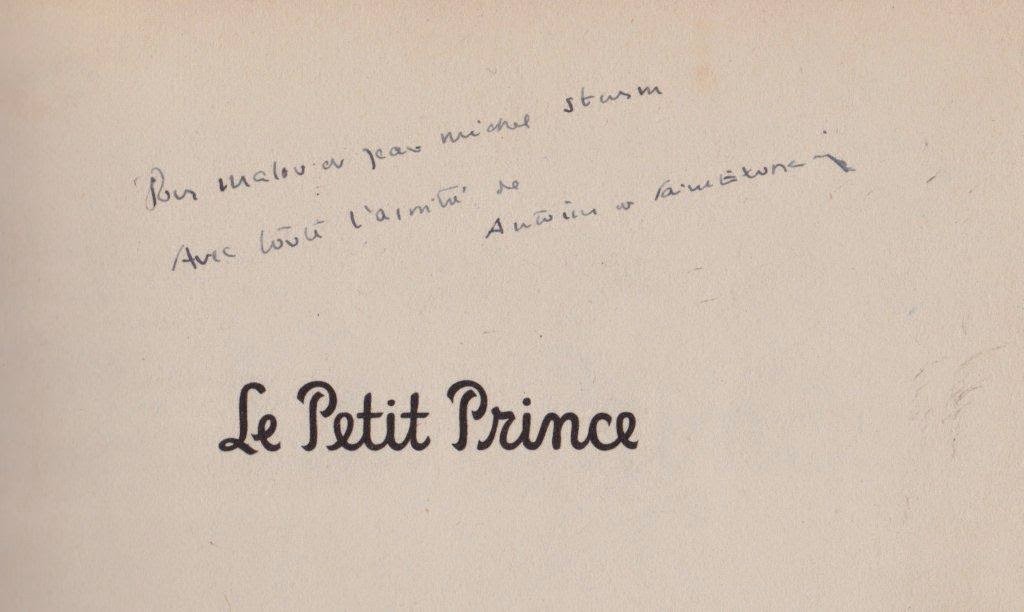 Pour malou et jean michel sturm
Avec toute l'amitié de
Antoine de Saint Exupery
Le Petit Prince